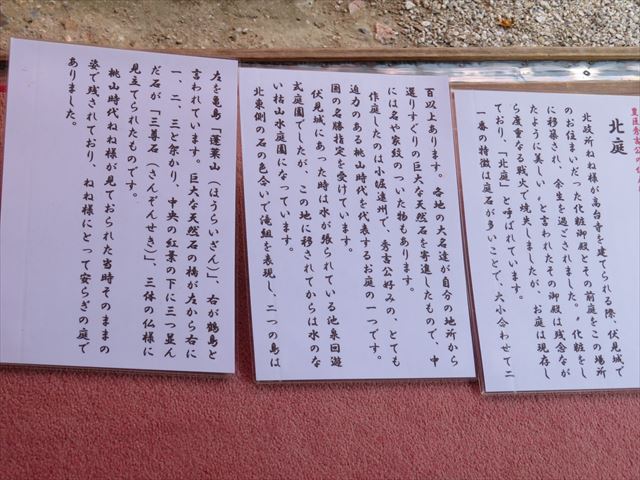 北庭
北政所ねね様が高台寺を建てられる際、伏見城で
のお住まいだった化粧御殿とその前庭をこの場所
に移築され、余生を過ごされました。〝化粧をし
たように美しい〟と言われたその御殿は残念なが
ら度重なる戦火で焼失しましたが、お庭は現存し
ており、「北庭」と呼ばれています。
一番の特徴は庭石が多いことで、大小合わせて二
百以上あります。各地の大名達が自分の地所から
選りすぐりの巨大な天然石を寄進したもので、中
には名や家紋のついた物もあります。
作庭したのは小堀遠州で、秀吉公好みの、とても
迫力のある桃山時代を代表するお庭の一つです。
国の名勝指定を受けています。
伏見城にあった時は水が張られている池泉回遊
式庭園でしたが、この地に移されてからは水のな
い枯山水庭園になっています。
北東側の石の色合いで滝組を表現し、二つの島は
左を亀島「蓬莱山（ほうらいざん）」、右が鶴島と
言われています。巨大な天然石の橋が左から右に
一、二、三と架かり、中央の紅葉の下に三つ並ん
だ石が「三尊石（さんぞんせき）」、三体の仏様に
見立てられたものです。
桃山時代ねね様が見ておられた当時そのままの
姿で残されており、ねね様にとって安らぎの庭で
ありました。